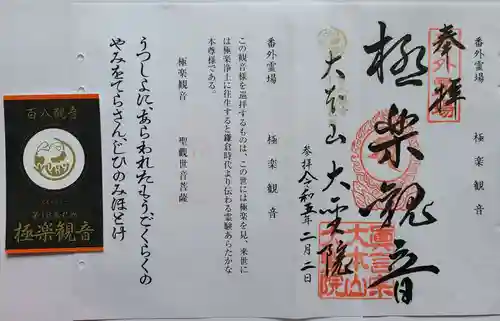 番外霊場　極楽観音
奉拝
番外霊場
極楽観音
大本山大聖院
真言宗
大本山
参拝令和五年二月二日
番外霊場　極楽観音
この観音様を巡拝するものは、この世には極楽を見、来世に
は極楽浄土に往生すると鎌倉時代より伝わる霊験あらたかな
本尊様である。
極楽観音　聖觀世音菩薩
うつしよに、あらわれたもうごくらくの
やみをてらさんじひのみほとけ
百八観音
極楽観音